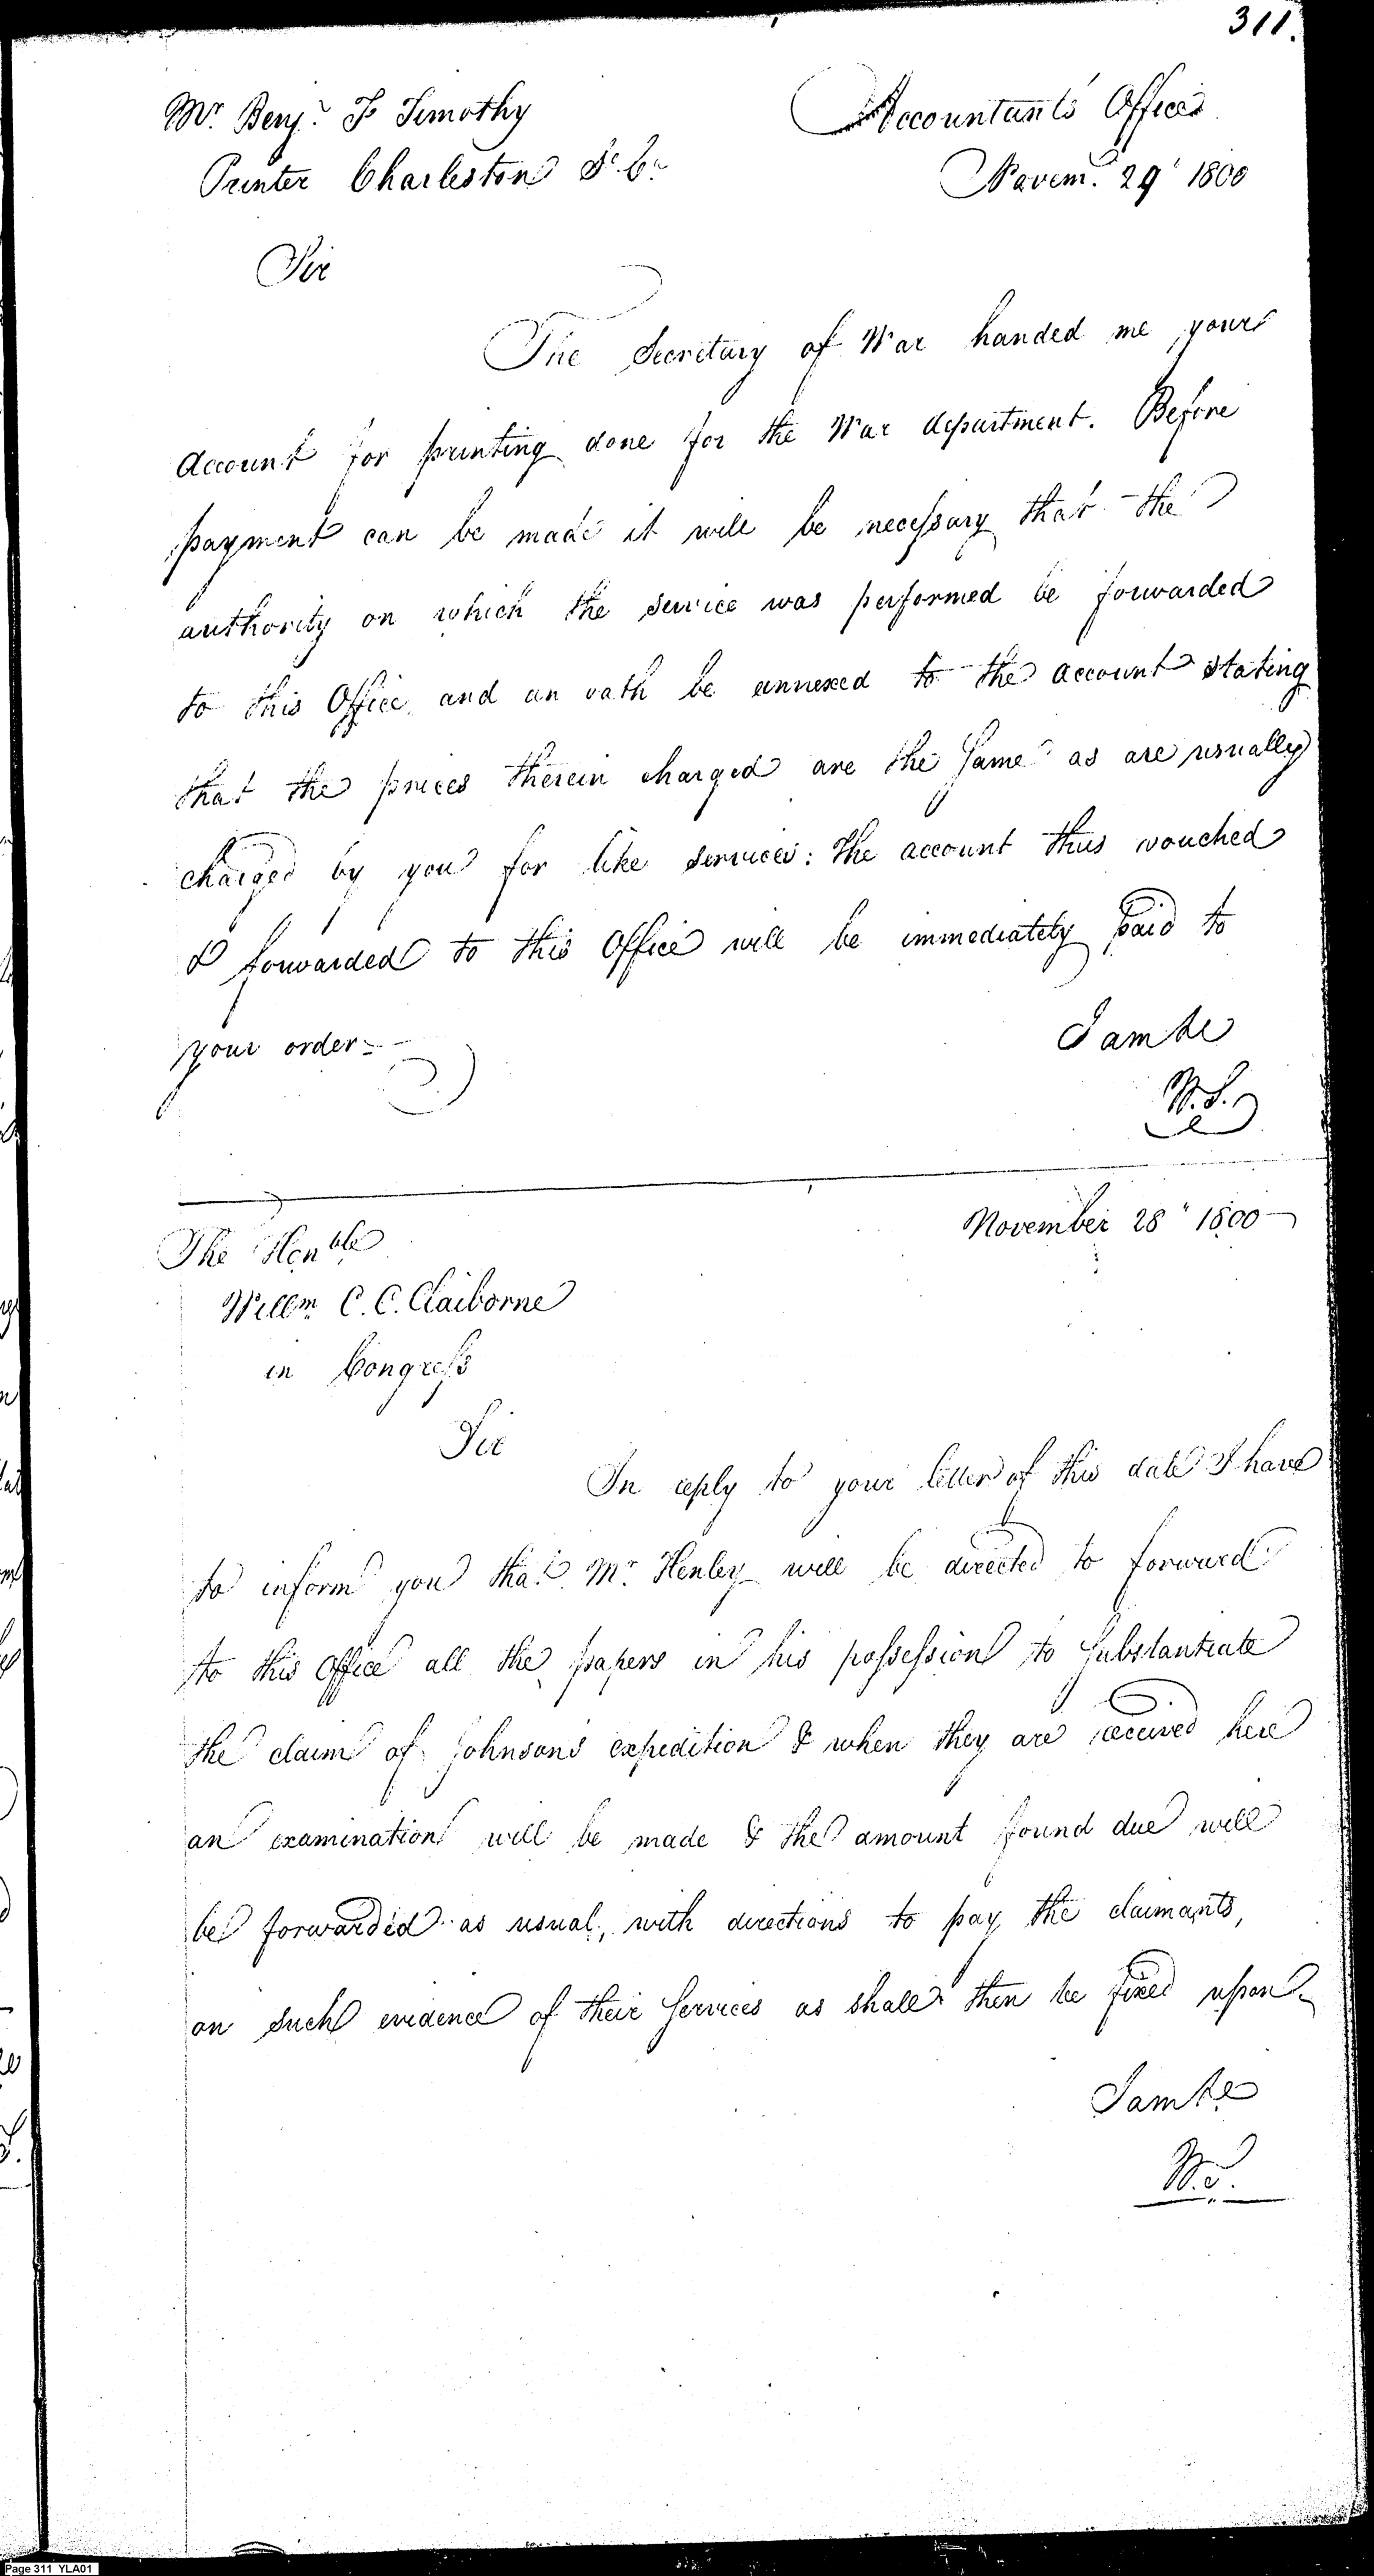 311.
Mr. Benj. F Timothy
Accountants Office
Printer Charleston So. Ca.
Novem. 29 1800
Sir
The Secretary of War handed me your
account for printing done for the War department. Before
payment can be made it will be necessary that the
authority on which the service was performed be forwarded
to this Office and an oath be annexed to the account stating
that the prices therein charged are the same as are usually
charged by you for like services: the account thus vouched
& forwarded to this Office will be immediately paid to
your order
I am &c
W.S.
November 28" 1800
The Honble
Willm C. C. Claiborne
in Congress
Sir
In reply to your letter of this date I have
to inform you that Mr. Henley will be directed to forward
to this office all the papers in his possession to substantiate
the claim of Johnsons expedition & when they are received here
an examination will be made & the amount found due will
be forwarded as usual, with directions to pay the claimants,
on such evidence of their services as shall then be fixed upon
I am &c
W.S.
Page 311 YLA01